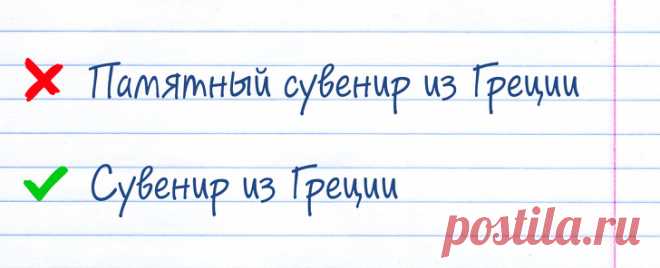 Памятный сувенир из Греции
Сувенир из Греции
postila.ru